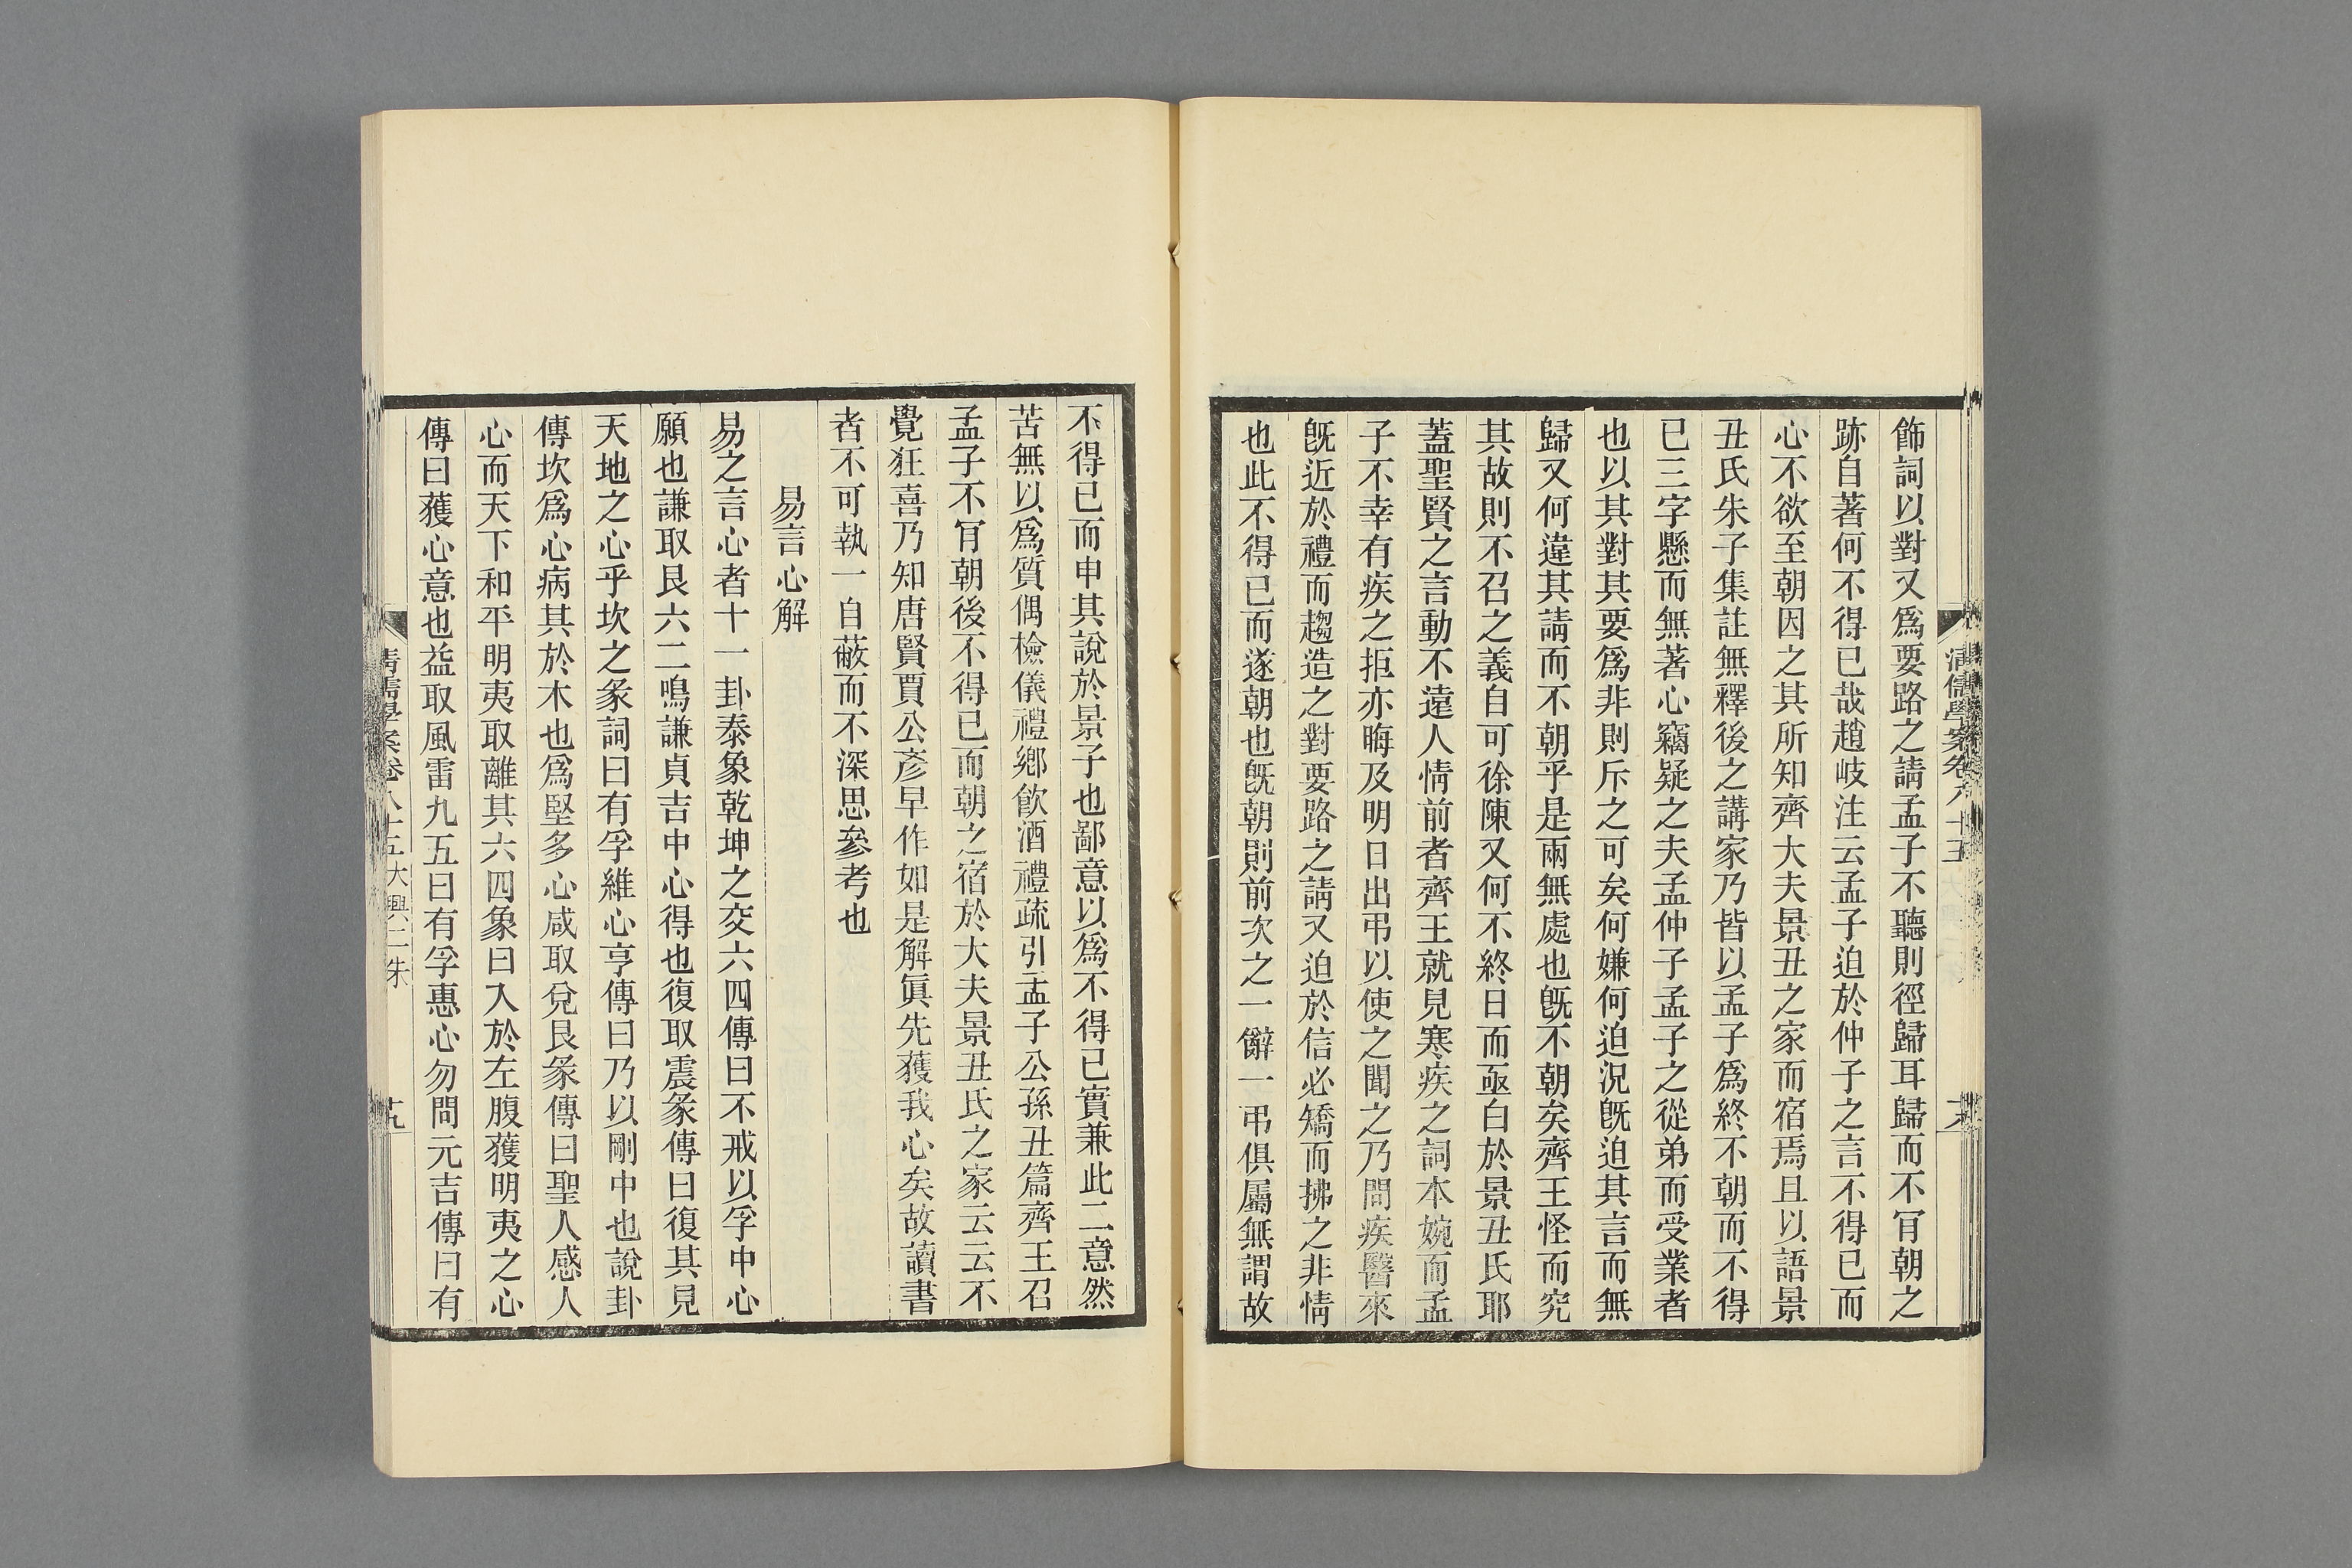 清儒學案卷八十五
飾詞以對又爲要路之請孟子不聽則徑歸耳歸而不肎朝之
跡自著何不得已哉趙岐注云孟子迫於仲子之言不得已而
心不欲至朝因之其所知齊大夫景丑之家而宿焉且以語景
丑氏朱子集註無釋後之講家乃皆以孟子爲終不朝而不得
已三字懸而無著心竊疑之夫孟仲子孟子之從弟而受業者
也以其對其要爲非則斥之可矣何嫌何迫況旣迫其言而無
歸又何違其請而不朝乎是兩無處也旣不朝矣齊王怪而究
其故則不召之義自可徐陳又何不終日而亟白於景丑氏耶
蓋聖賢之言動不遠人情前者齊王就見寒疾之詞本婉而孟
子不幸有疾之拒亦晦及明日出弔以使之聞之乃問疾醫來
旣近於禮而趨造之對要路之請又迫於信必矯而拂之非情
也此不得已而遂朝也旣朝則前次之一辭一弔俱屬無謂故
不得已而申其說於景子也鄙意以爲不得已實兼此二意然
苦無以爲質偶檢儀禮鄉飮酒禮疏引孟子公孫丑篇齊王召
孟子不肎朝後不得已而朝之宿於大夫景丑氏之家云云不
覺狂喜乃知唐賢賈公彥早作如是解眞先獲我心矣故讀書
者不可執一自蔽而不深思參考也
易言心解
易之言心者十一卦泰象乾坤之交六四傳曰不戒以孚中心
願也謙取艮六二鳴謙貞吉中心得也復取震彖傳曰復其見
天地之心乎坎之彖詞曰有孚維心亨傳曰乃以剛中也說卦
傳坎爲心病其於木也爲堅多心咸取兌艮彖傳曰聖人感人
心而天下和平明夷取離其六四象曰入於左腹獲明夷之心
傳曰獲心意也益取風雷九五曰有孚惠心勿問元吉傳曰有
清儒學案卷八十五大興二朱
十九